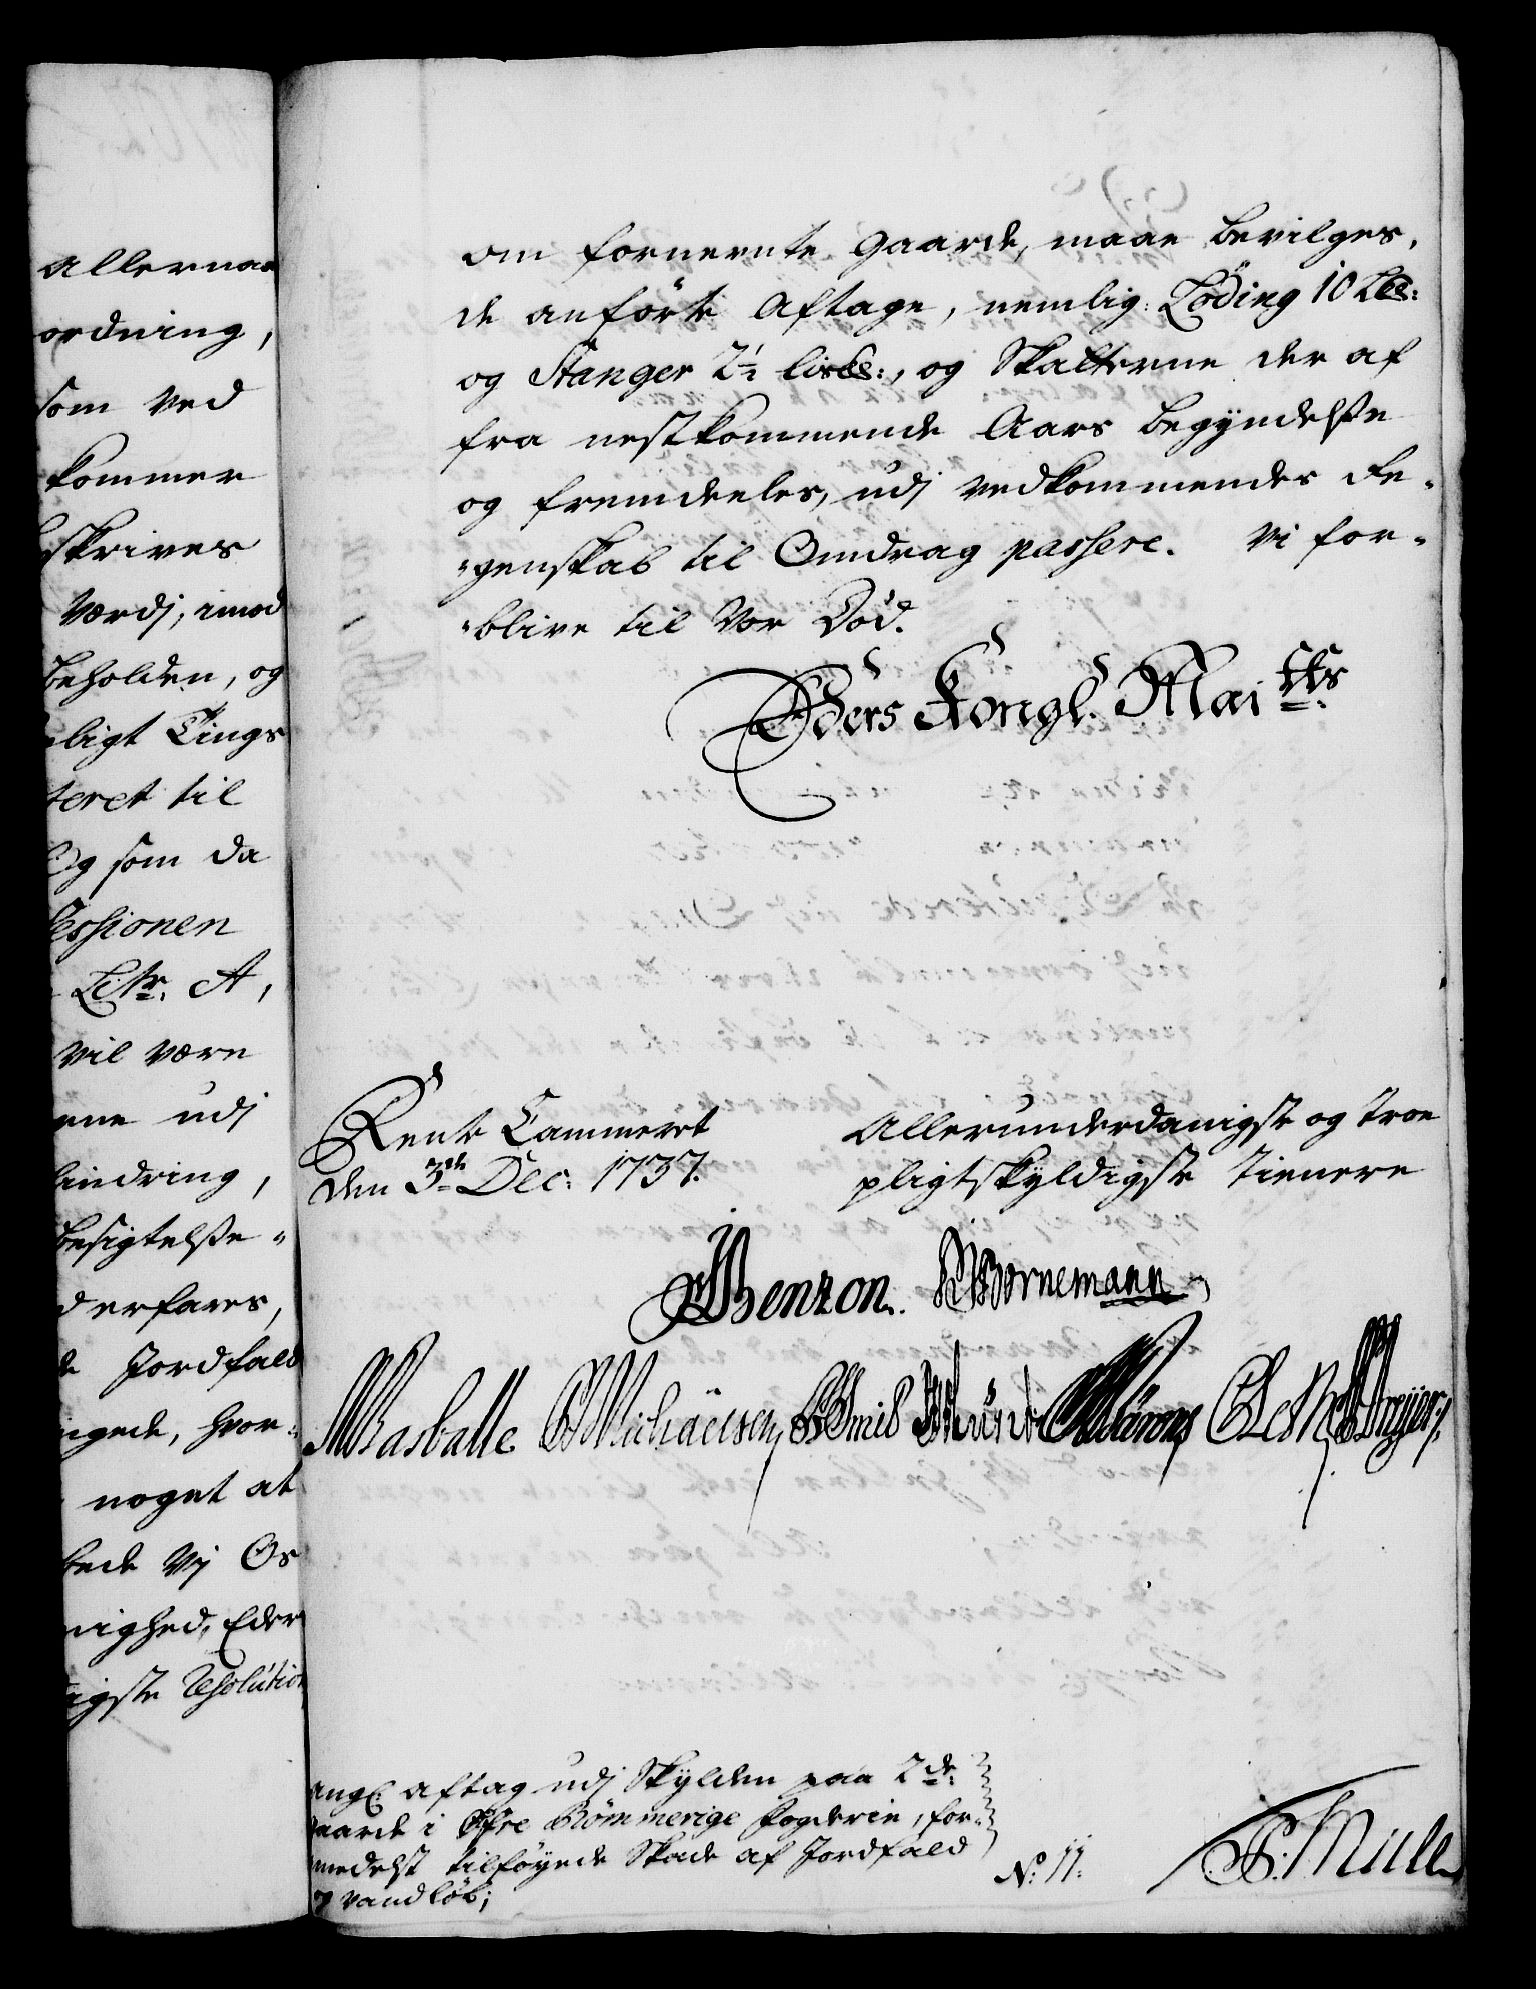 Allernaa
ordning,
som ved
kommer
skrives
Værdj, imod
beholden, og
ligt Tings
teret til
Og som da
sessionen
Litr. A,
vil være
ene udj
hindring,
besigtelsse-
erfares,
Jordfald
ngede, hvor-
noget at
bede Vj Os
nighed, Eders
igste Resolution
om fornevnte Gaarde, maae bevilges,
de anførte Aftage, nemlig: Löding 10 Lb:
og Stanger 2½ lislb:, og Skatterne der af
fra nestkommende Aars begyndelsse
og fremdeeles, udj vedkommendes Re-
-genskab til Omdrag passere. Vi for-
-blive til Vor Död.
Eders Kongl. Mai tts
Rente Cammeret
den 3de Dec: 1737.
Allerunderdanigste og troe
pligtskyldigste tienere
Benzon. Bornemann
Basballe Michaelsen Smid Munk
Dreyer
ang: aftag udj Skylden paa 2de
gaarde i Öfre Römmerige Fogderie, for-
medelst tilföyede Skade af Jordfald
og vandlöb;
No: 11:
Müller